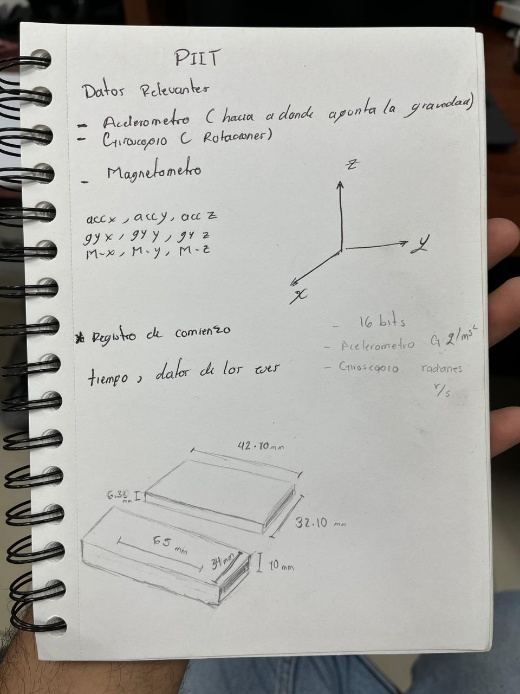 PIIT
Datos Relevantes
- Acelerometro ( hacia a donde apunta la gravedad)
- Giroscopio ( Rotaciones)
- Magnetometro
z
y
x
accx , accy, acc z
gyx , gyy , gy z
M-x, M-y, M-z
* Registro de comienzo
tiempo, dator de los
- 16 bits
- Acelerometro G
- Giroscopio radianes
r/s
42.70 mm
6.35 mm
32.10 mm
65 mm
34 mm
10 mm